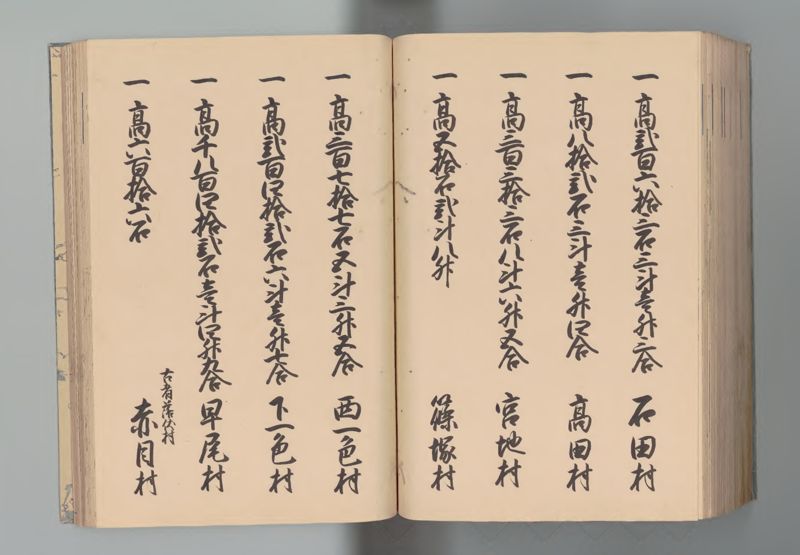 一高弐百六拾三石三斗壱升二合 石田村
一高八拾弐石三斗壱升四合 高田村
一高三百三拾三石八斗六升五合 宮地村
一高五拾石弐斗八升 篠塚村
一高三百七拾七石五斗三升五合 西一色村
一高弐百四拾弐石六斗壱升七合 下一色村
一高千八百四拾弐石壱斗四升九合 早尾村
一高六百拾六石 赤目村